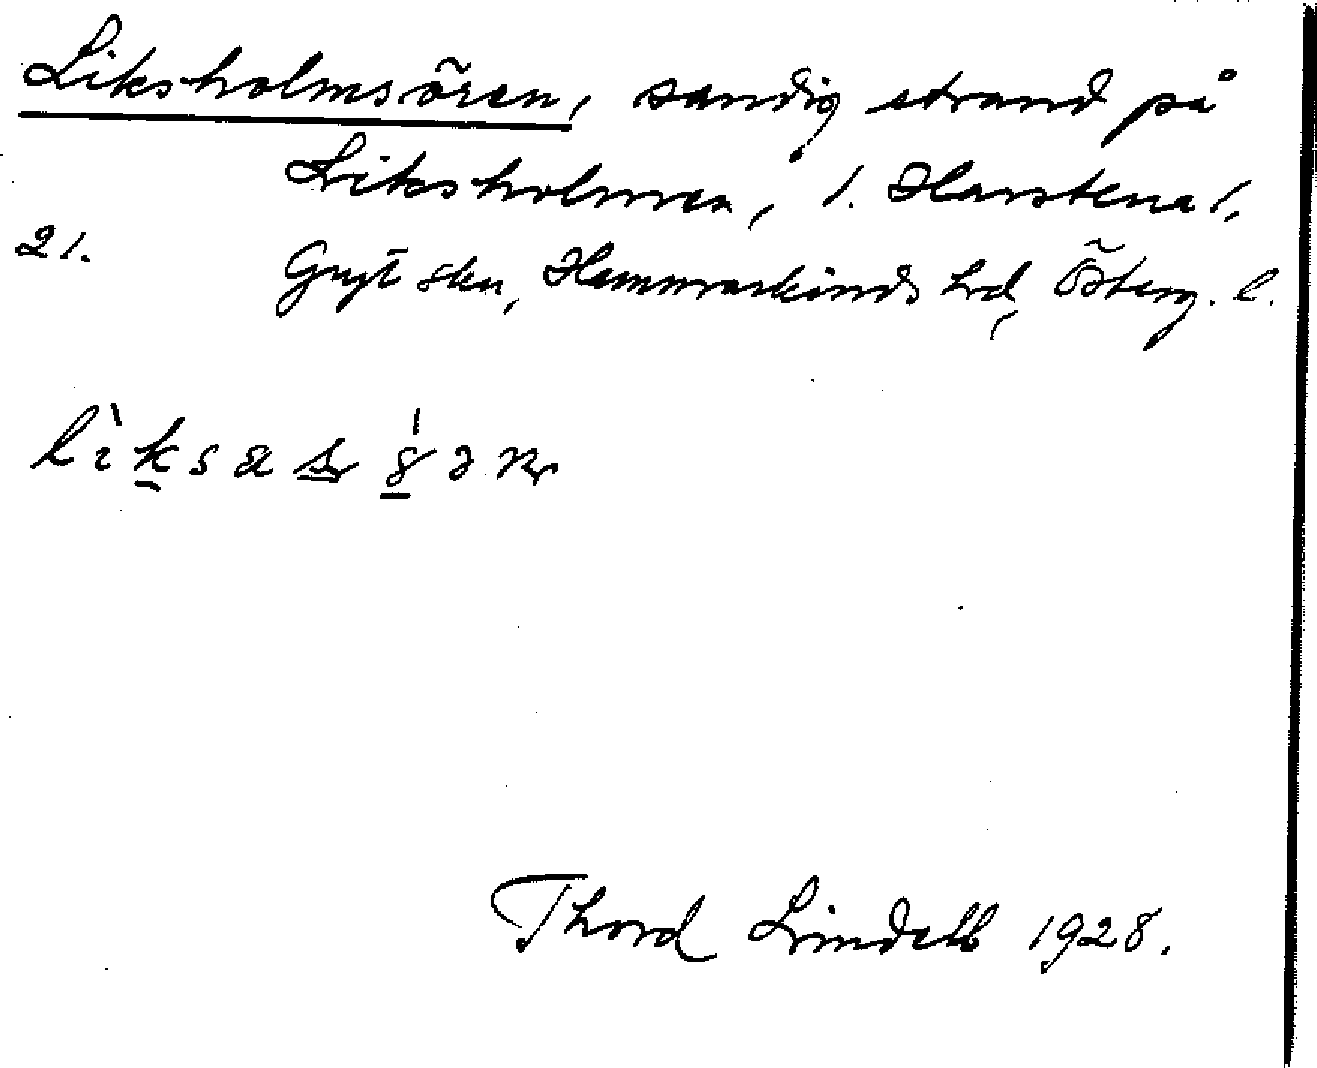 Liksholmsören, sandig strand på
Liksholmen, 1. Harstena 1,
21. Gryt skn, Hammarkinds hrd, Österg. l.
Thord Lindell 1928.